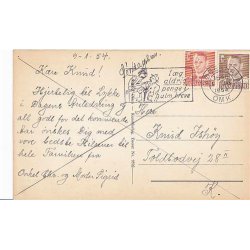 9-1.54.
København.
Kære Knud!
Hjertelig til Lykke
i Dagens Anledning og
alt godt for det kommende
Aar ønskes Dig med
vore bedste Hilsener til
hele Familien fra
Onkel og Moster Sigrid
Læg
aldrig
penge i
alm. breve
OMK
Herr
Knud Ishøy
Toldbodvej 28
K.